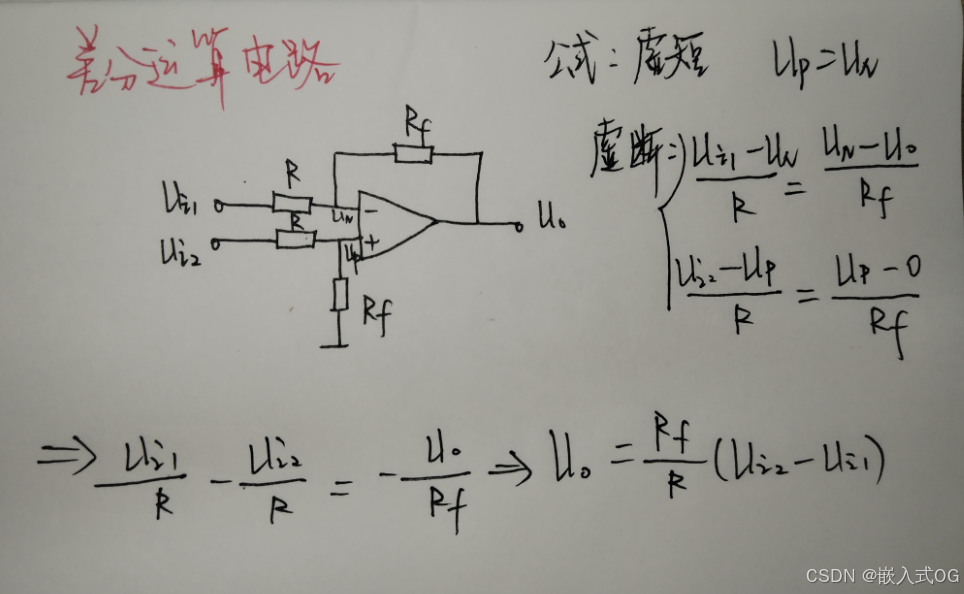 差分运算电路
公式: 虚短 Up=UN
虚断⇒ (Ui1-UN)/R = (UN-Uo)/Rf
(Ui2-Up)/R = (Up-0)/Rf
Rf
R
Ui1
UN
-
R
Ui2
Up
+
Uo
Rf
⇒ Ui1/R - Ui2/R = - Uo/Rf ⇒ Uo = Rf/R (Ui2-Ui1)
CSDN @嵌入式OG